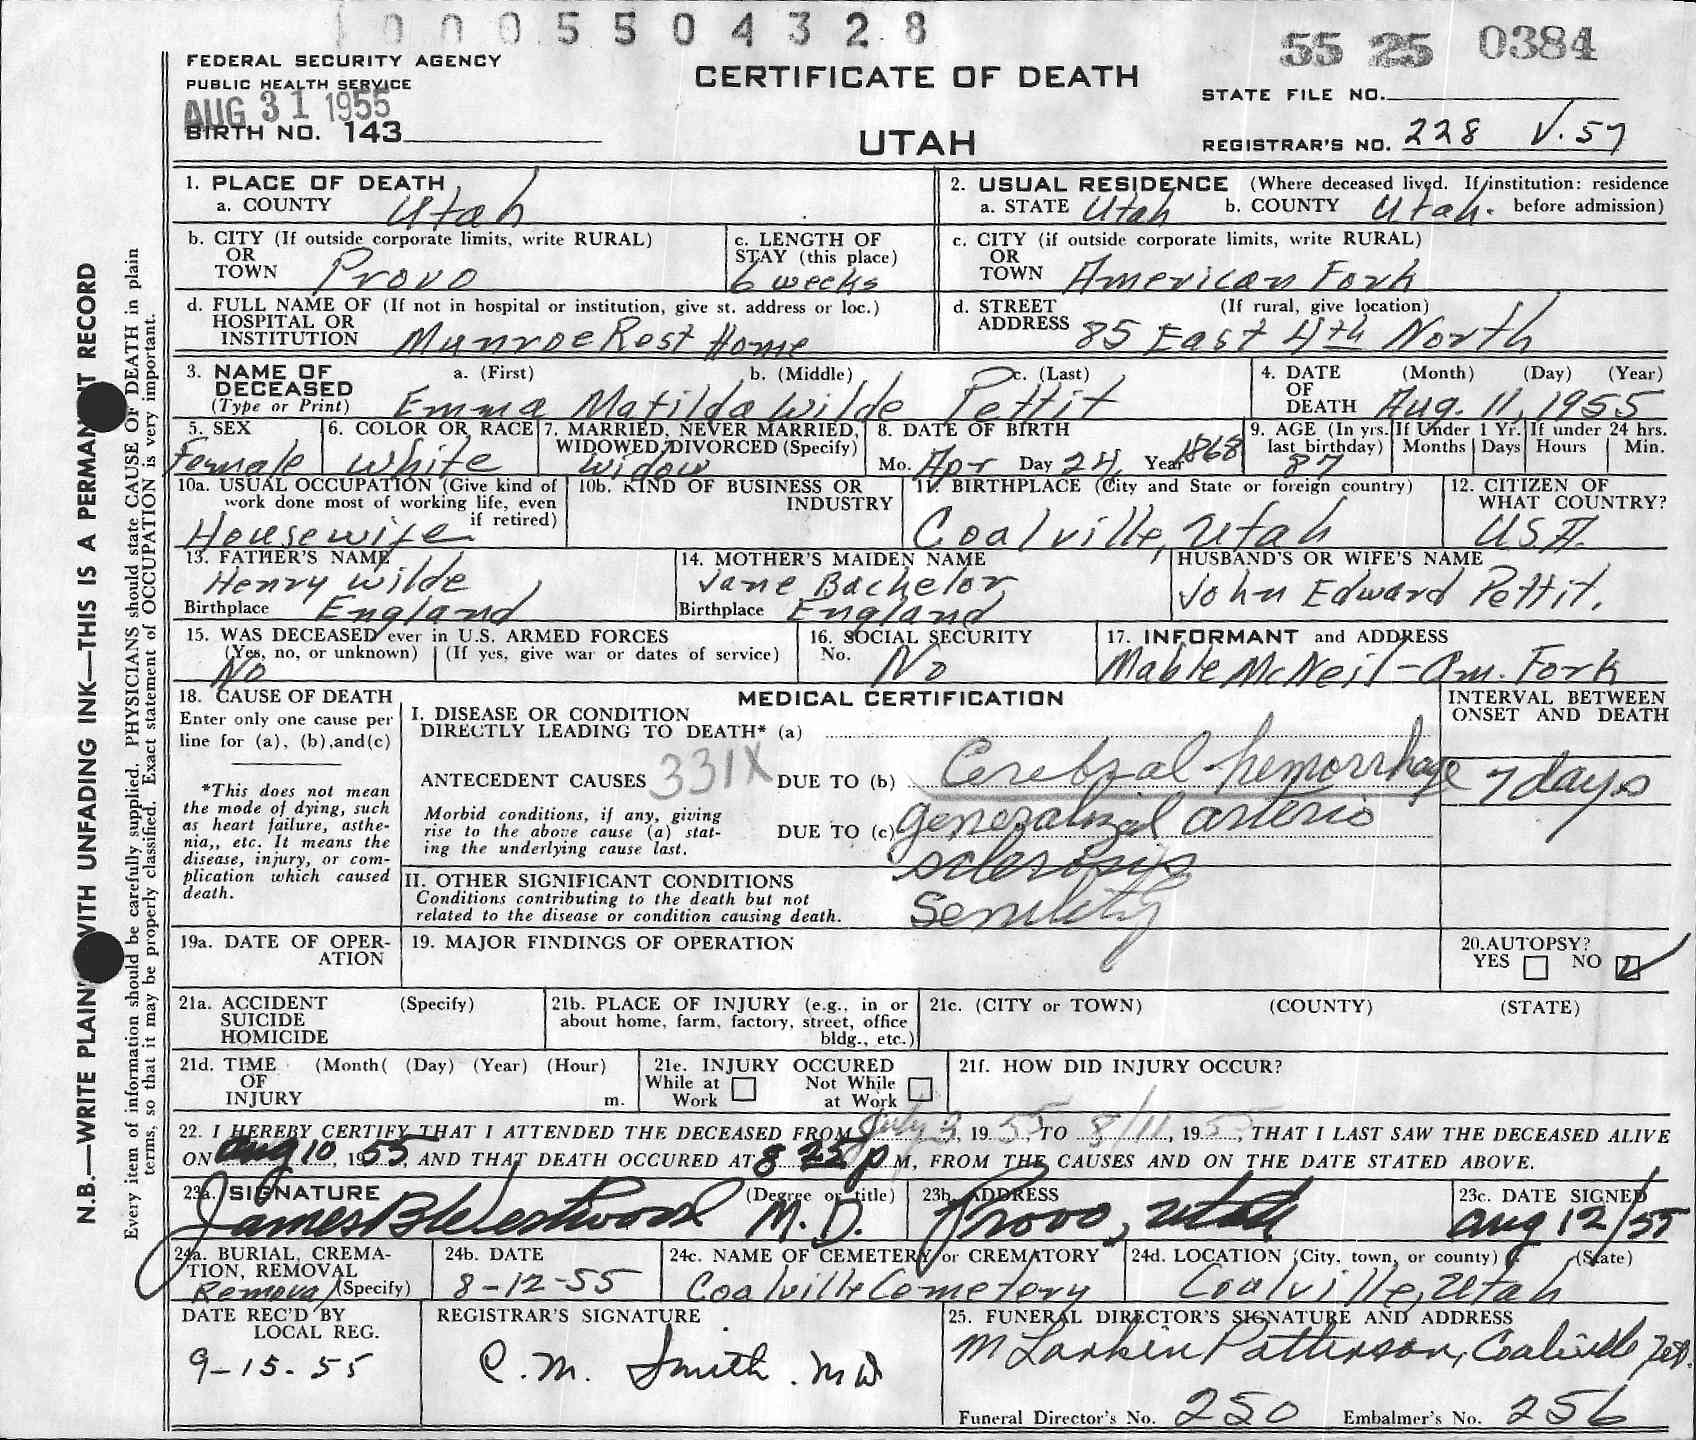 0005504328
55 25 0384
FEDERAL SECURITY AGENCY
PUBLIC HEALTH SERVICE
AUG 31 1955
BIRTH NO. 143
CERTIFICATE OF DEATH
UTAH
STATE FILE NO.
REGISTRAR'S NO. 228 V.57
N.B.—WRITE PLAIN WITH UNFADING INK—THIS IS A PERMANT RECORD
Every item of information should be carefully supplied. PHYSICIANS should state CAUSE OF DEATH in plain
terms, so that it may be properly classified. Exact statement of OCCUPATION is very important.
1. PLACE OF DEATH
a. COUNTY Utah
2. USUAL RESIDENCE (Where deceased lived. If institution: residence
a. STATE Utah b. COUNTY Utah. before admission)
b. CITY (If outside corporate limits, write RURAL)
OR
TOWN Provo
c. LENGTH OF
STAY (this place)
6 weeks
c. CITY (if outside corporate limits, write RURAL)
OR
TOWN American Fork
d. FULL NAME OF (If not in hospital or institution, give st. address or loc.)
HOSPITAL OR
INSTITUTION Munroe Rest Home
d. STREET (If rural, give location)
ADDRESS 85 East 4th North
3. NAME OF DECEASED
(Type or Print)
a. (First) b. (Middle) c. (Last)
Emma Matilda Wilde Pettit
4. DATE OF DEATH (Month) (Day) (Year)
Aug. 11, 1955
5. SEX
Female
6. COLOR OR RACE
White
7. MARRIED, NEVER MARRIED,
WIDOWED, DIVORCED (Specify)
Widow
8. DATE OF BIRTH
Mo. Apr Day 24, Year 1868
9. AGE (In yrs. last birthday)
87
If Under 1 Yr.
Months Days
If under 24 hrs.
Hours Min.
10a. USUAL OCCUPATION (Give kind of
work done most of working life, even
if retired)
Housewife
10b. KIND OF BUSINESS OR
INDUSTRY
11. BIRTHPLACE (City and State or foreign country)
Coalville, Utah
12. CITIZEN OF
WHAT COUNTRY?
USA.
13. FATHER'S NAME
Henry Wilde
Birthplace England
14. MOTHER'S MAIDEN NAME
Jane Bachelor
Birthplace England
HUSBAND'S OR WIFE'S NAME
John Edward Pettit.
15. WAS DECEASED ever in U.S. ARMED FORCES
(Yes, no, or unknown) (If yes, give war or dates of service)
No
16. SOCIAL SECURITY
No. No
17. INFORMANT and ADDRESS
Mable McNeil - Am. Fork
18. CAUSE OF DEATH
Enter only one cause per
line for (a), (b),and(c)
*This does not mean
the mode of dying, such
as heart failure, asthe-
nia,, etc. It means the
disease, injury, or com-
plication which caused
death.
MEDICAL CERTIFICATION
I. DISEASE OR CONDITION
DIRECTLY LEADING TO DEATH* (a)
ANTECEDENT CAUSES 331X DUE TO (b) Cerebral hemorrhage
Morbid conditions, if any, giving
rise to the above cause (a) stat-
ing the underlying cause last.
DUE TO (c) generalized arterio
sclerosis
II. OTHER SIGNIFICANT CONDITIONS
Conditions contributing to the death but not
related to the disease or condition causing death.
Senility
INTERVAL BETWEEN
ONSET AND DEATH
7 days
19a. DATE OF OPER-
ATION
19. MAJOR FINDINGS OF OPERATION
20.AUTOPSY?
YES NO
21a. ACCIDENT (Specify)
SUICIDE
HOMICIDE
21b. PLACE OF INJURY (e.g., in or
about home, farm, factory, street, office
bldg., etc.)
21c. (CITY or TOWN) (COUNTY) (STATE)
21d. TIME (Month( (Day) (Year) (Hour)
OF
INJURY m.
21e. INJURY OCCURED
While at Work Not While at Work
21f. HOW DID INJURY OCCUR?
22. I HEREBY CERTIFY THAT I ATTENDED THE DECEASED FROM July 3, 1955, TO 8/11, 1955, THAT I LAST SAW THE DECEASED ALIVE
ON Aug 10, 1955, AND THAT DEATH OCCURED AT 8 25 P M, FROM THE CAUSES AND ON THE DATE STATED ABOVE.
23a. SIGNATURE (Degree or title)
James B Westwood M.D.
23b. ADDRESS
Provo, Utah
23c. DATE SIGNED
Aug 12/55
24a. BURIAL, CREMA-
TION, REMOVAL
(Specify)
Removal
24b. DATE
8-12-55
24c. NAME OF CEMETERY or CREMATORY
Coalville Cemetery
24d. LOCATION (City, town, or county) (State)
Coalville, Utah
DATE REC'D BY
LOCAL REG.
9-15-55
REGISTRAR'S SIGNATURE
C. M. Smith. MD
25. FUNERAL DIRECTOR'S SIGNATURE AND ADDRESS
M Larkin Patterson, Coalville
Funeral Director's No. 250 Embalmer's No. 256